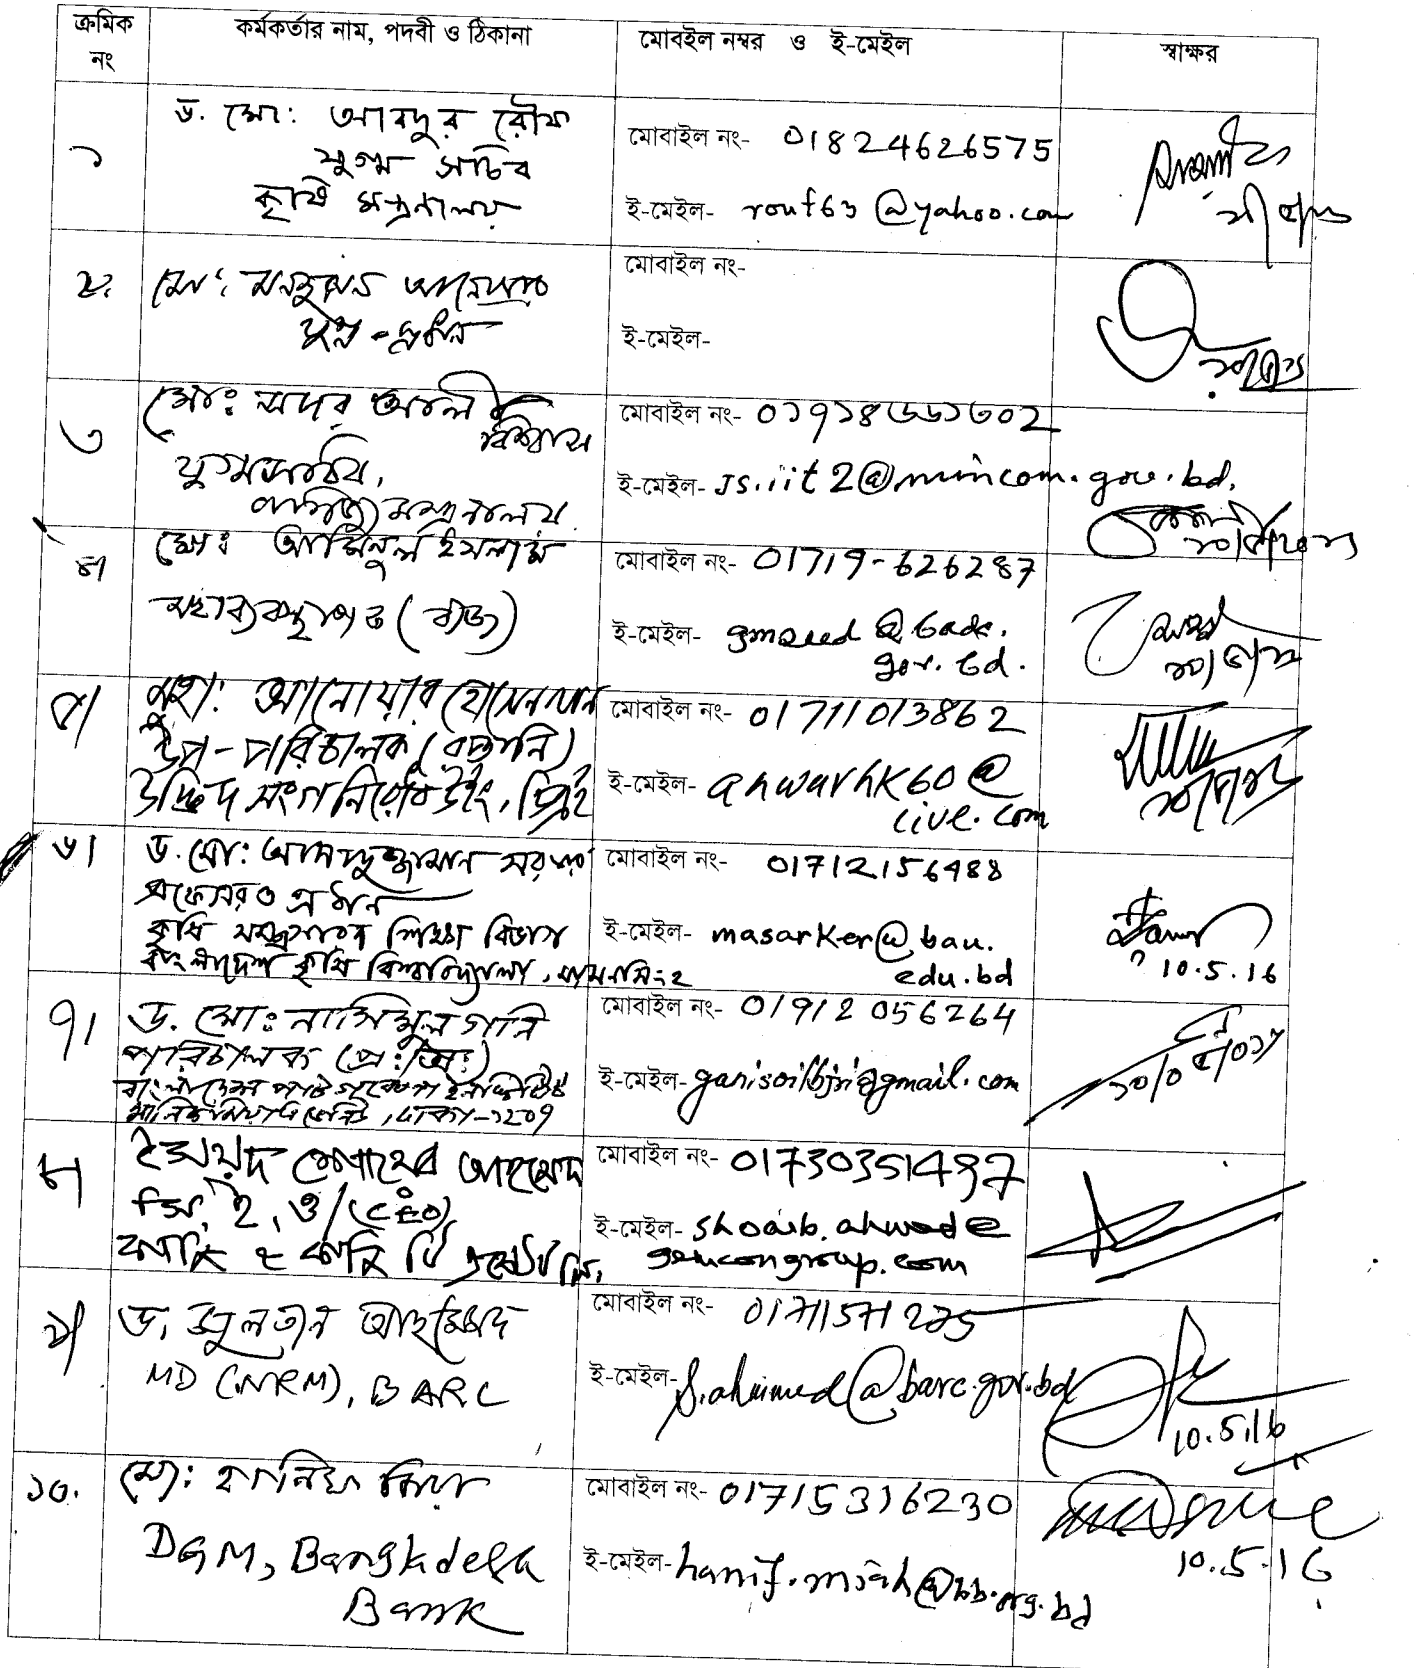 ক্রমিক নং
কর্মকর্তার নাম, পদবী ও ঠিকানা
মোবইল নম্বর ও ই-মেইল
স্বাক্ষর
১
ড. মো: আবদুর রৌফ
যুগ্ম সচিব
কৃষি মন্ত্রনালয়
মোবাইল নং- 01824626575
ই-মেইল- rouf63@yahoo.com
২.
মো: আনোয়ার
যুগ্ম-প্রধান
মোবাইল নং-
ই-মেইল-
৩
মোঃ আলী বিশ্বাস
যুগ্মসচিব,
বাণিজ্য মন্ত্রনালয়
মোবাইল নং- ০১৭১৪৬৬১৩০২
ই-মেইল- js.iit2@mincom.gov.bd.
৪
মোঃ আমিনুল ইসলাম
মহাব্যবস্থাপক (বীজ)
মোবাইল নং- 01719-626287
ই-মেইল- gmseed@badc.
gov.bd.
৫।
মুহা: আনোয়ার হোসেন খান
উপ-পরিচালক (রপ্তানি)
উদ্ভিদ সংগনিরোধ উইং, ডিএই
মোবাইল নং- 01711013862
ই-মেইল- anwarhk60@
live.com
৬।
ড. মো: আসাদুজ্জামান সরকার
প্রফেসর ও প্রধান
কৃষি সম্প্রসারণ শিক্ষা বিভাগ
বাংলাদেশ কৃষি বিশ্ববিদ্যালয়, ময়মনসিংহ
মোবাইল নং- 01712156488
ই-মেইল- masarker@bau.
edu.bd
10.5.16
৭।
ড. মো: নাসিমুল গনি
পরিচালক
বাংলাদেশ পাট গবেষণা ইনস্টিটিউট
মানিক মিয়া এভিনিউ, ঢাকা-১২০৭
মোবাইল নং- 01912056264
ই-মেইল- ganisoilbjri@gmail.com
৮।
সৈয়দ শোয়ায়েব আহমেদ
সি, ই, ও/(CEO)
মোবাইল নং- 01730351497
ই-মেইল- shoaib.ahmed@
gemcongroup.com
৯।
ড. সুলতান আহম্মেদ
MD (NRM), BARC
মোবাইল নং- 01711571275
ই-মেইল- s.ahmmed@barc.gov.bd
10.5.16
১০.
মো: হানিফ মিয়া
DGM, Bangladesh
Bank
মোবাইল নং- 01715316230
ই-মেইল- hanif.miah@bb.org.bd
10.5.16